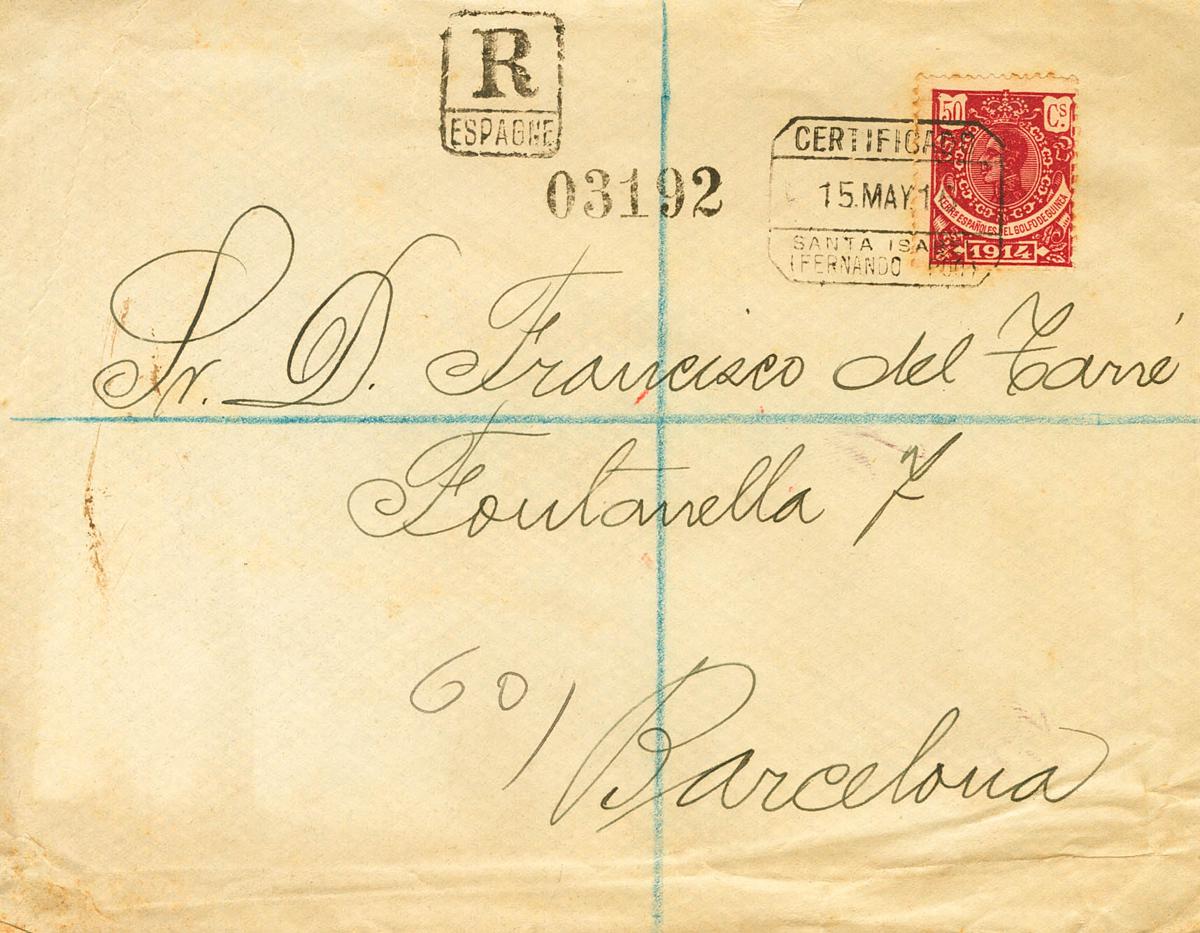 R
ESPAGNE
03192
CERTIFICADO
15.MAY 1
SANTA ISA
(FERNANDO POO)
50 Cs.
TERROS ESPAÑOLES DEL GOLFO DE GUINEA
1914
Sr. D. Francisco del Tarré
Fontanella 7
60/
Barcelona